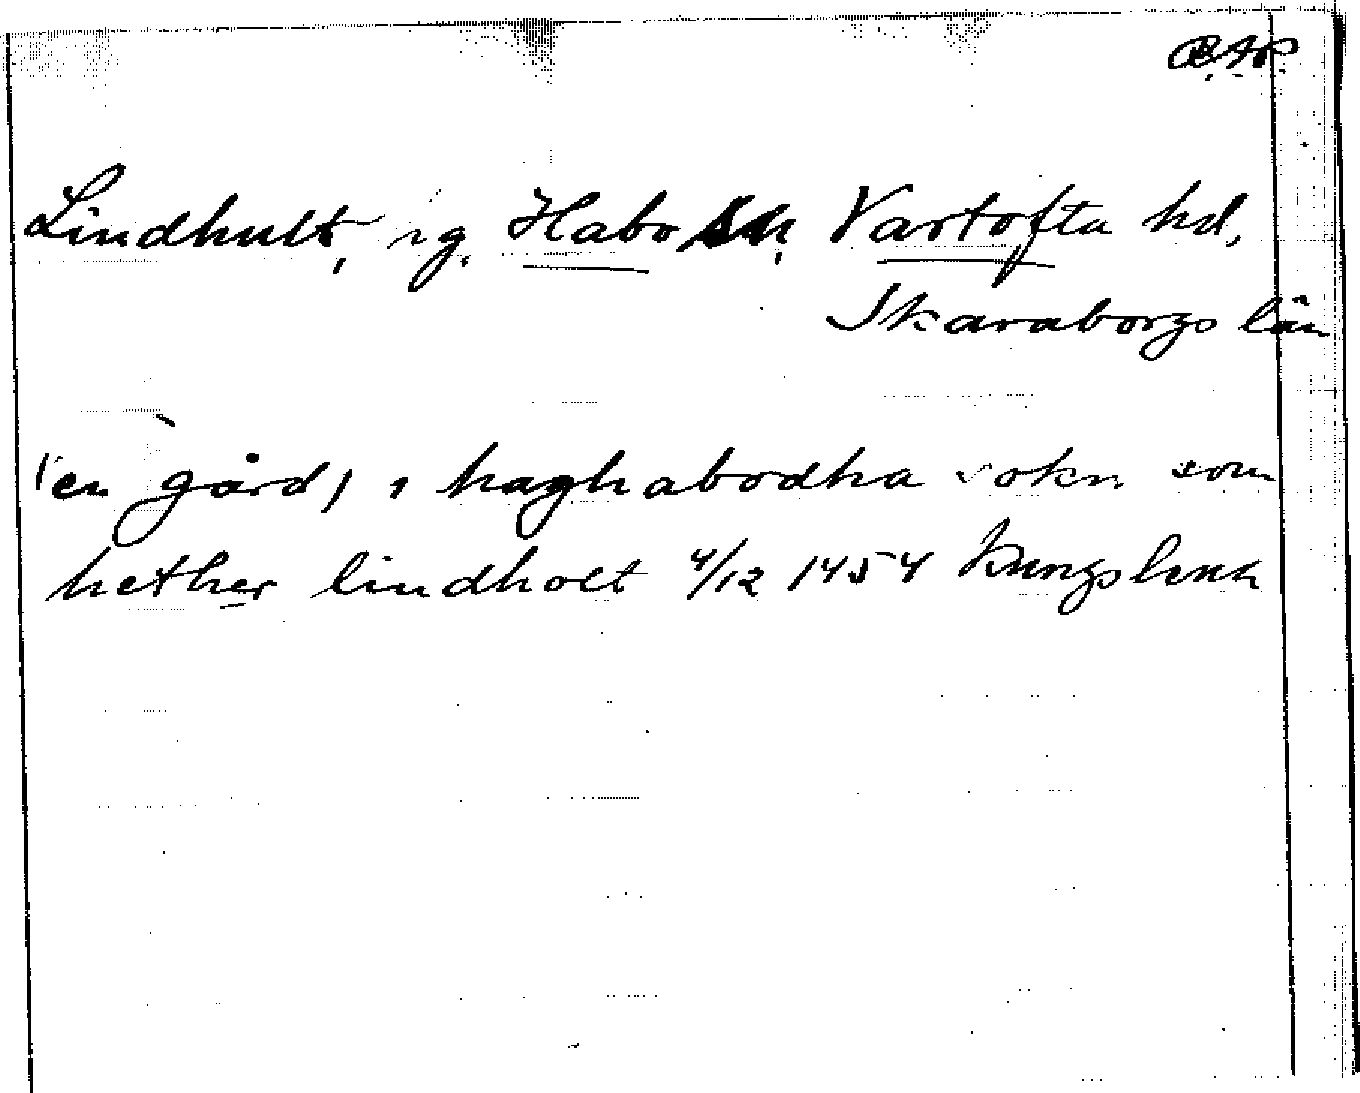 Lindhult, rg. Habo sn, Vartofta hd,
Skaraborgs län
(en gård) i haghabodha sokn som
hether lindholt 4/12 1454 Kungslena